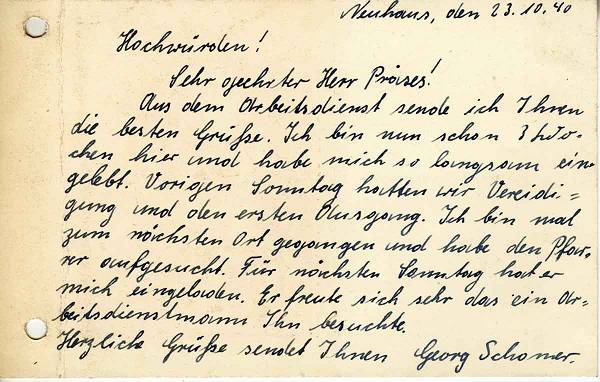 Neuhaus, den 23.10.40
Hochwürden!
Sehr geehrter Herr Präses!
Aus dem Arbeitsdienst sende ich Ihnen
die besten Grüße. Ich bin nun schon 3 Wo-
chen hier und habe mich so langsam ein-
gelebt. Vorigen Sonntag hatten wir Vereidi=
gung und den ersten Ausgang. Ich bin mal
zum nächsten Ort gegangen und habe den Pfar-
rer aufgesucht. Für nächsten Sonntag hat er
mich eingeladen. Er freute sich sehr das ein Ar=
beitsdienstmann Ihn besuchte.
Herzliche Grüße sendet Ihnen Georg Schomer.